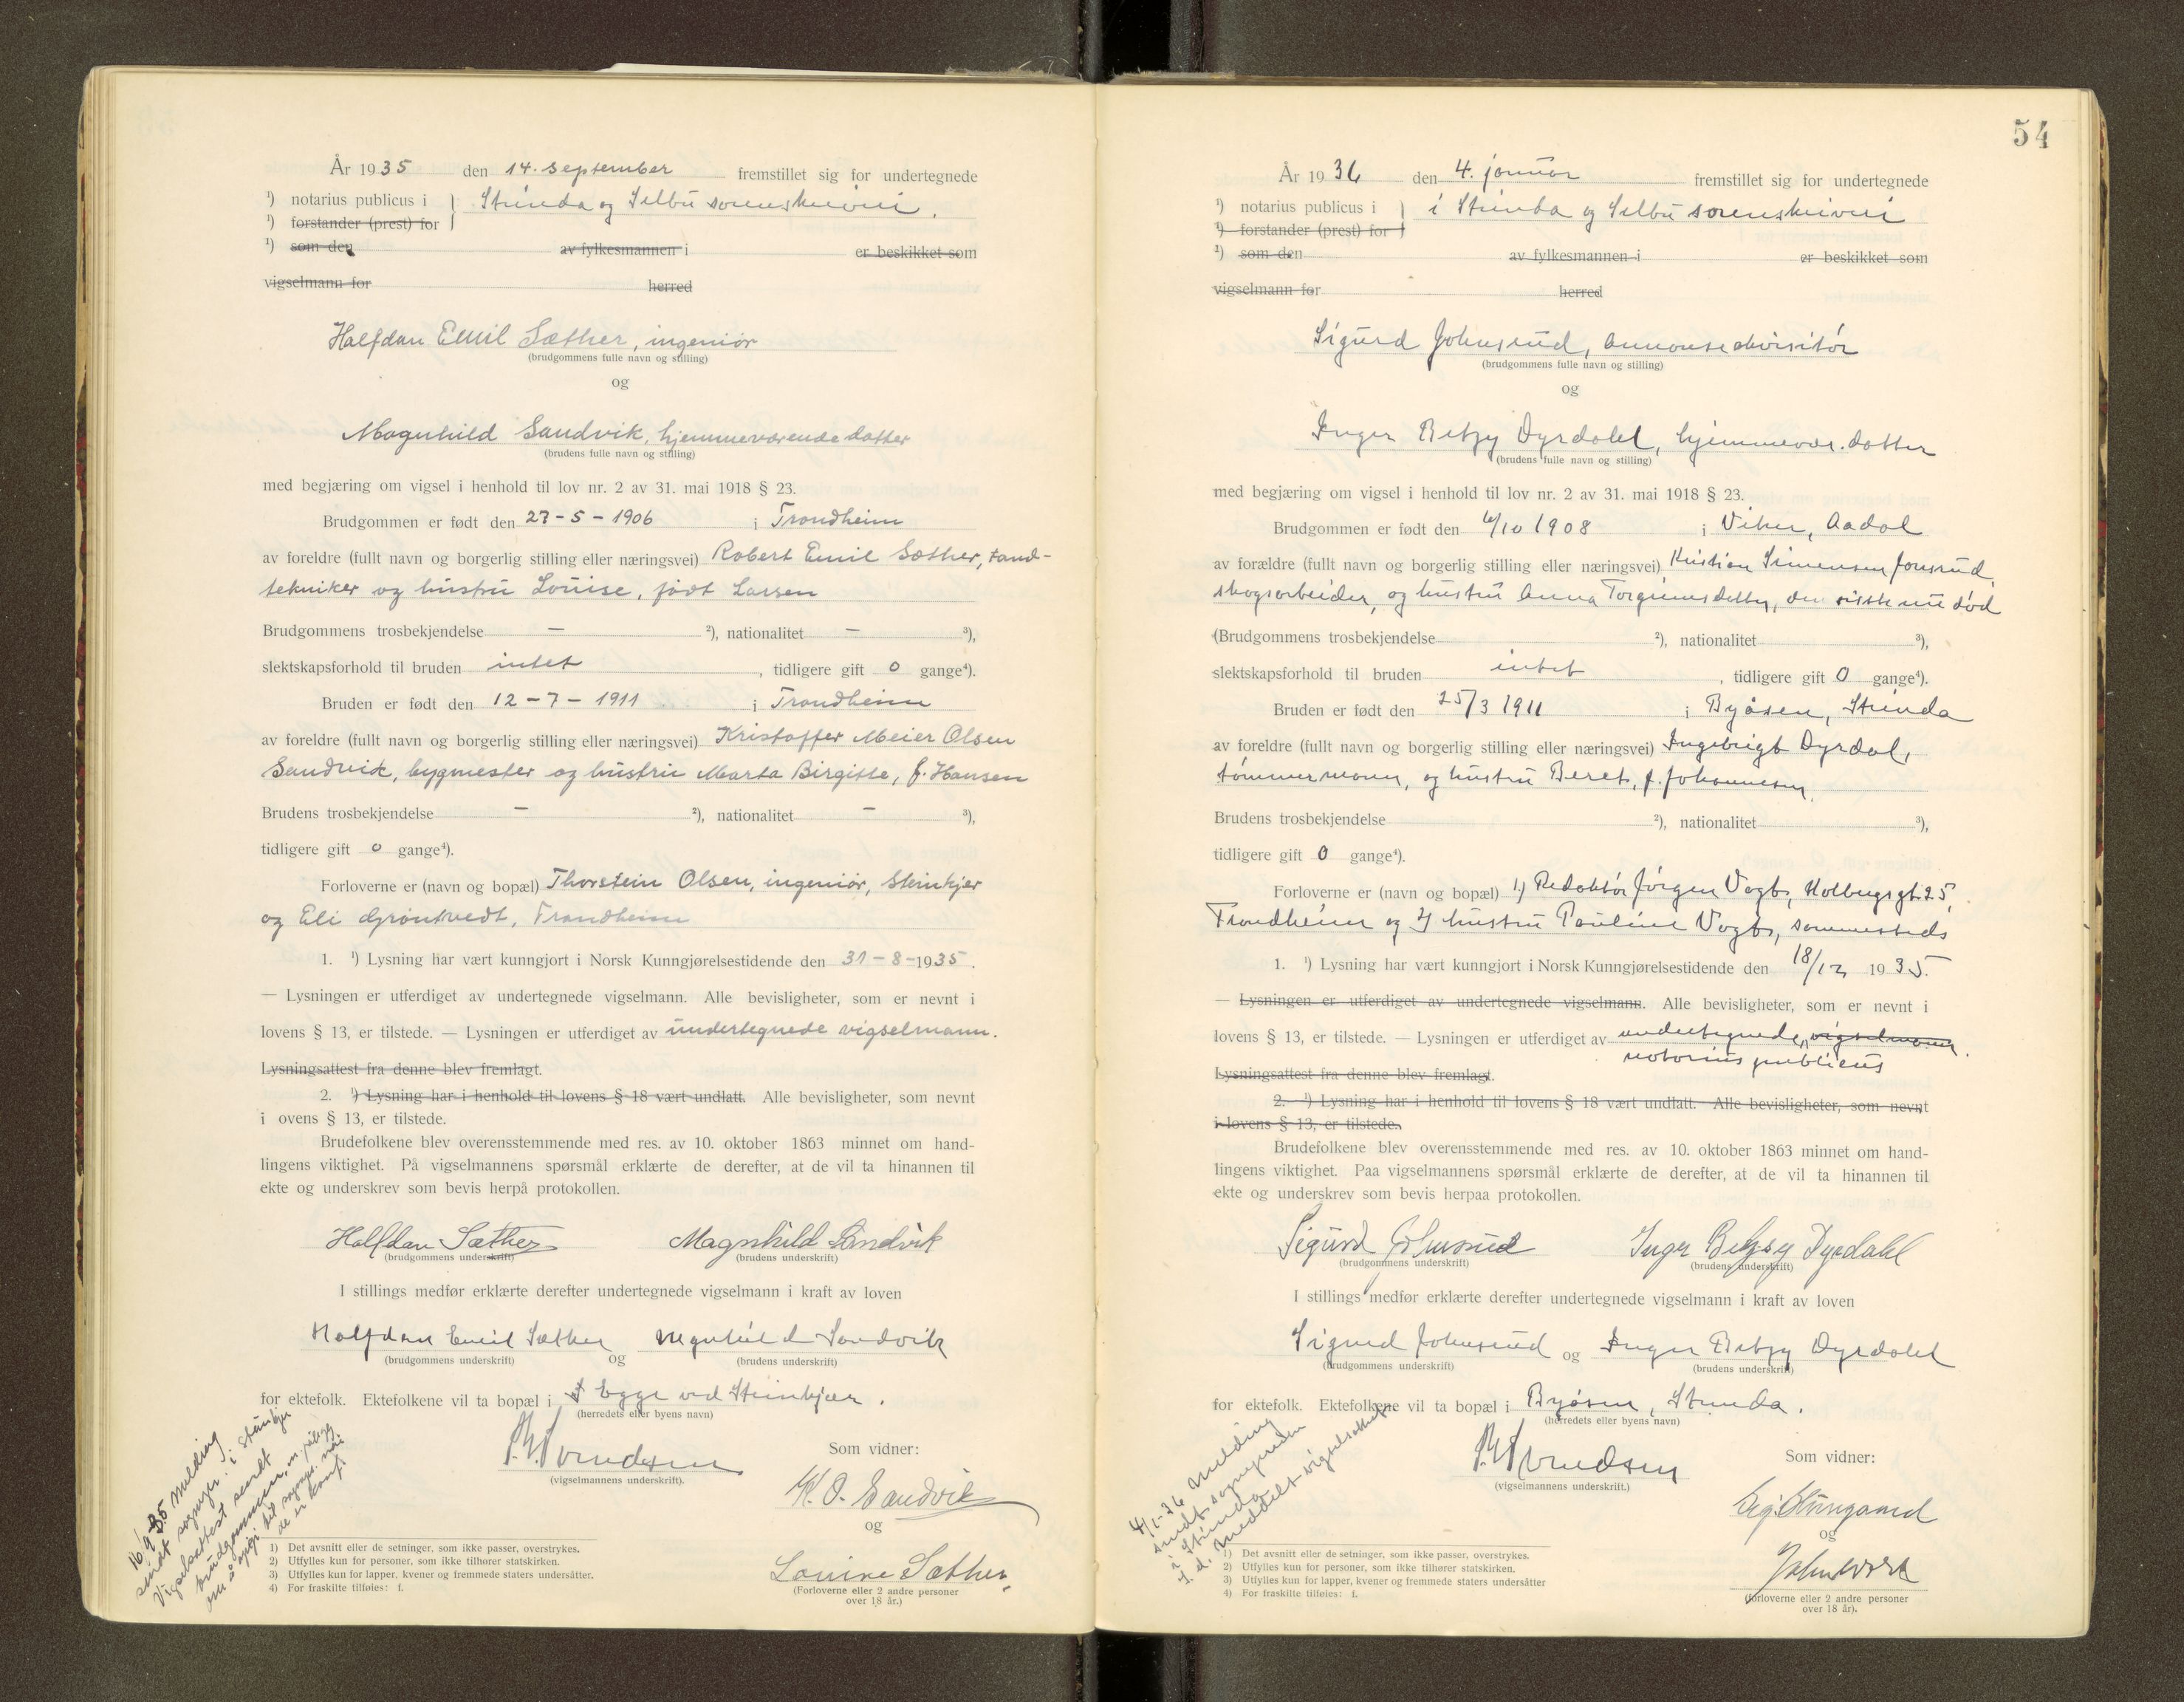 År 1935 den 14. september fremstillet sig for undertegnede
¹) notarius publicus i } Strinda og Selbu sorenskriveri.
¹) forstander (prest) for
¹) som den av fylkesmannen i er beskikket som
vigselmann for herred
Halfdan Emil Sæther, ingeniør
(brudgommens fulle navn og stilling)
og
Magnhild Sandvik, hjemmeværende datter
(brudens fulle navn og stilling)
med begjæring om vigsel i henhold til lov nr. 2 av 31. mai 1918 § 23.
Brudgommen er født den 27-5-1906 i Trondheim
av foreldre (fullt navn og borgerlig stilling eller næringsvei) Robert Emil Sæther, tand-
tekniker og hustru Louise, født Larsen
Brudgommens trosbekjendelse — ²), nationalitet — ³),
slektskapsforhold til bruden intet, tidligere gift 0 gange⁴).
Bruden er født den 12-7-1911 i Trondheim
av foreldre (fullt navn og borgerlig stilling eller næringsvei) Kristoffer Meier Olsen
Sandvik, bygmester og hustru Marta Birgitte, f. Hansen
Brudens trosbekjendelse — ²), nationalitet — ³),
tidligere gift 0 gange⁴).
Forloverne er (navn og bopæl) Thorstein Olsen, ingeniør, Steinkjer
og Eli Grøntvedt, Trondheim
1. ¹) Lysning har vært kunngjort i Norsk Kunngjørelsestidende den 31-8-1935.
— Lysningen er utferdiget av undertegnede vigselmann. Alle bevisligheter, som er nevnt i
lovens § 13, er tilstede. — Lysningen er utferdiget av undertegnede vigselmann.
Lysningsattest fra denne blev fremlagt.
2. ¹) Lysning har i henhold til lovens § 18 vært undlatt. Alle bevisligheter, som nevnt
i ovens § 13, er tilstede.
Brudefolkene blev overensstemmende med res. av 10. oktober 1863 minnet om hand-
lingens viktighet. På vigselmannens spørsmål erklærte de derefter, at de vil ta hinannen til
ekte og underskrev som bevis herpå protokollen.
Halfdan Sæther Magnhild Sandvik
(brudgommens underskrift) (brudens underskrift)
I stillings medfør erklærte derefter undertegnede vigselmann i kraft av loven
Halfdan Emil Sæther og Magnhild Sandvik
(brudgommens underskrift) (brudens underskrift)
for ektefolk. Ektefolkene vil ta bopæl i Egge ved Steinkjær.
(herredets eller byens navn)
(vigselmannens underskrift).
Som vidner:
K. O. Sandvik
og
Louise Sæther,
(Forloverne eller 2 andre personer
over 18 år.)
16/9 35 melding
sendt sognepr. i Steinkjer
Vigselsattest sendt
brudgommen,
1) Det avsnitt eller de setninger, som ikke passer, overstrykes.
2) Utfylles kun for personer, som ikke tilhører statskirken.
3) Utfylles kun for lapper, kvener og fremmede staters undersåtter.
4) For fraskilte tilføies: f.
54
År 1936 den 4. januar fremstillet sig for undertegnede
¹) notarius publicus i } i Strinda og Selbu sorenskriveri
¹) forstander (prest) for
¹) som den av fylkesmannen i er beskikket som
vigselmann for herred
Sigurd Johnsrud, annonseakvisitør
(brudgommens fulle navn og stilling)
og
Inger Betzy Dyrdahl, hjemmevær. datter
(brudens fulle navn og stilling)
med begjæring om vigsel i henhold til lov nr. 2 av 31. mai 1918 § 23.
Brudgommen er født den 6/10 1908 i Viker, Aadal
av forældre (fullt navn og borgerlig stilling eller næringsvei) Kristian Simensen Jonsrud,
skogsarbeider, og hustru Anna Torgrimsdatter, den sistn. nu død
(Brudgommens trosbekjendelse ²), nationalitet ³),
slektskapsforhold til bruden intet, tidligere gift 0 gange⁴).
Bruden er født den 25/3 1911 i Byåsen, Strinda
av foreldre (fullt navn og borgerlig stilling eller næringsvei) Ingebrigt Dyrdal,
tømmermann, og hustru Beret, f. Johannesen.
Brudens trosbekjendelse ²), nationalitet ³),
tidligere gift 0 gange⁴).
Forloverne er (navn og bopæl) 1) Redaktør Jørgen Vogt, Holbergsgt. 25,
Trondheim og 2) hustru Pauline Vogt, sammesteds
1. ¹) Lysning har vært kunngjort i Norsk Kunngjørelsestidende den 18/12 1935.
— Lysningen er utferdiget av undertegnede vigselmann. Alle bevisligheter, som er nevnt i
lovens § 13, er tilstede. — Lysningen er utferdiget av undertegnede vigselmann.
notarius publicus
Lysningsattest fra denne blev fremlagt.
2. ¹) Lysning har i henhold til lovens § 18 vært undlatt. Alle bevisligheter, som nevnt
i lovens § 13, er tilstede.
Brudefolkene blev overensstemmende med res. av 10. oktober 1863 minnet om hand-
lingens viktighet. Paa vigselmannens spørsmål erklærte de derefter, at de vil ta hinannen til
ekte og underskrev som bevis herpaa protokollen.
Sigurd Johnsrud Inger Betzy Dyrdahl
(brudgommens underskrift) (brudens underskrift)
I stillings medfør erklærte derefter undertegnede vigselmann i kraft av loven
Sigurd Johnsrud og Inger Betzy Dyrdahl
(brudgommens underskrift) (brudens underskrift)
for ektefolk. Ektefolkene vil ta bopæl i Byåsen, Strinda.
(herredets eller byens navn)
(vigselmannens underskrift.)
Som vidner:
og
(forloverne eller 2 andre personer
over 18 år).
4/1-36 Melding
sendt sognepresten
i Strinda
s. d. meddelt vigselsattest
1) Det avsnitt eller de setninger, som ikke passer, overstrykes.
2) Utfylles kun for personer, som ikke tilhører statskirken.
3) Utfylles kun for lapper, kvener og fremmede staters undersåtter
4) For fraskilte tilføies: f.